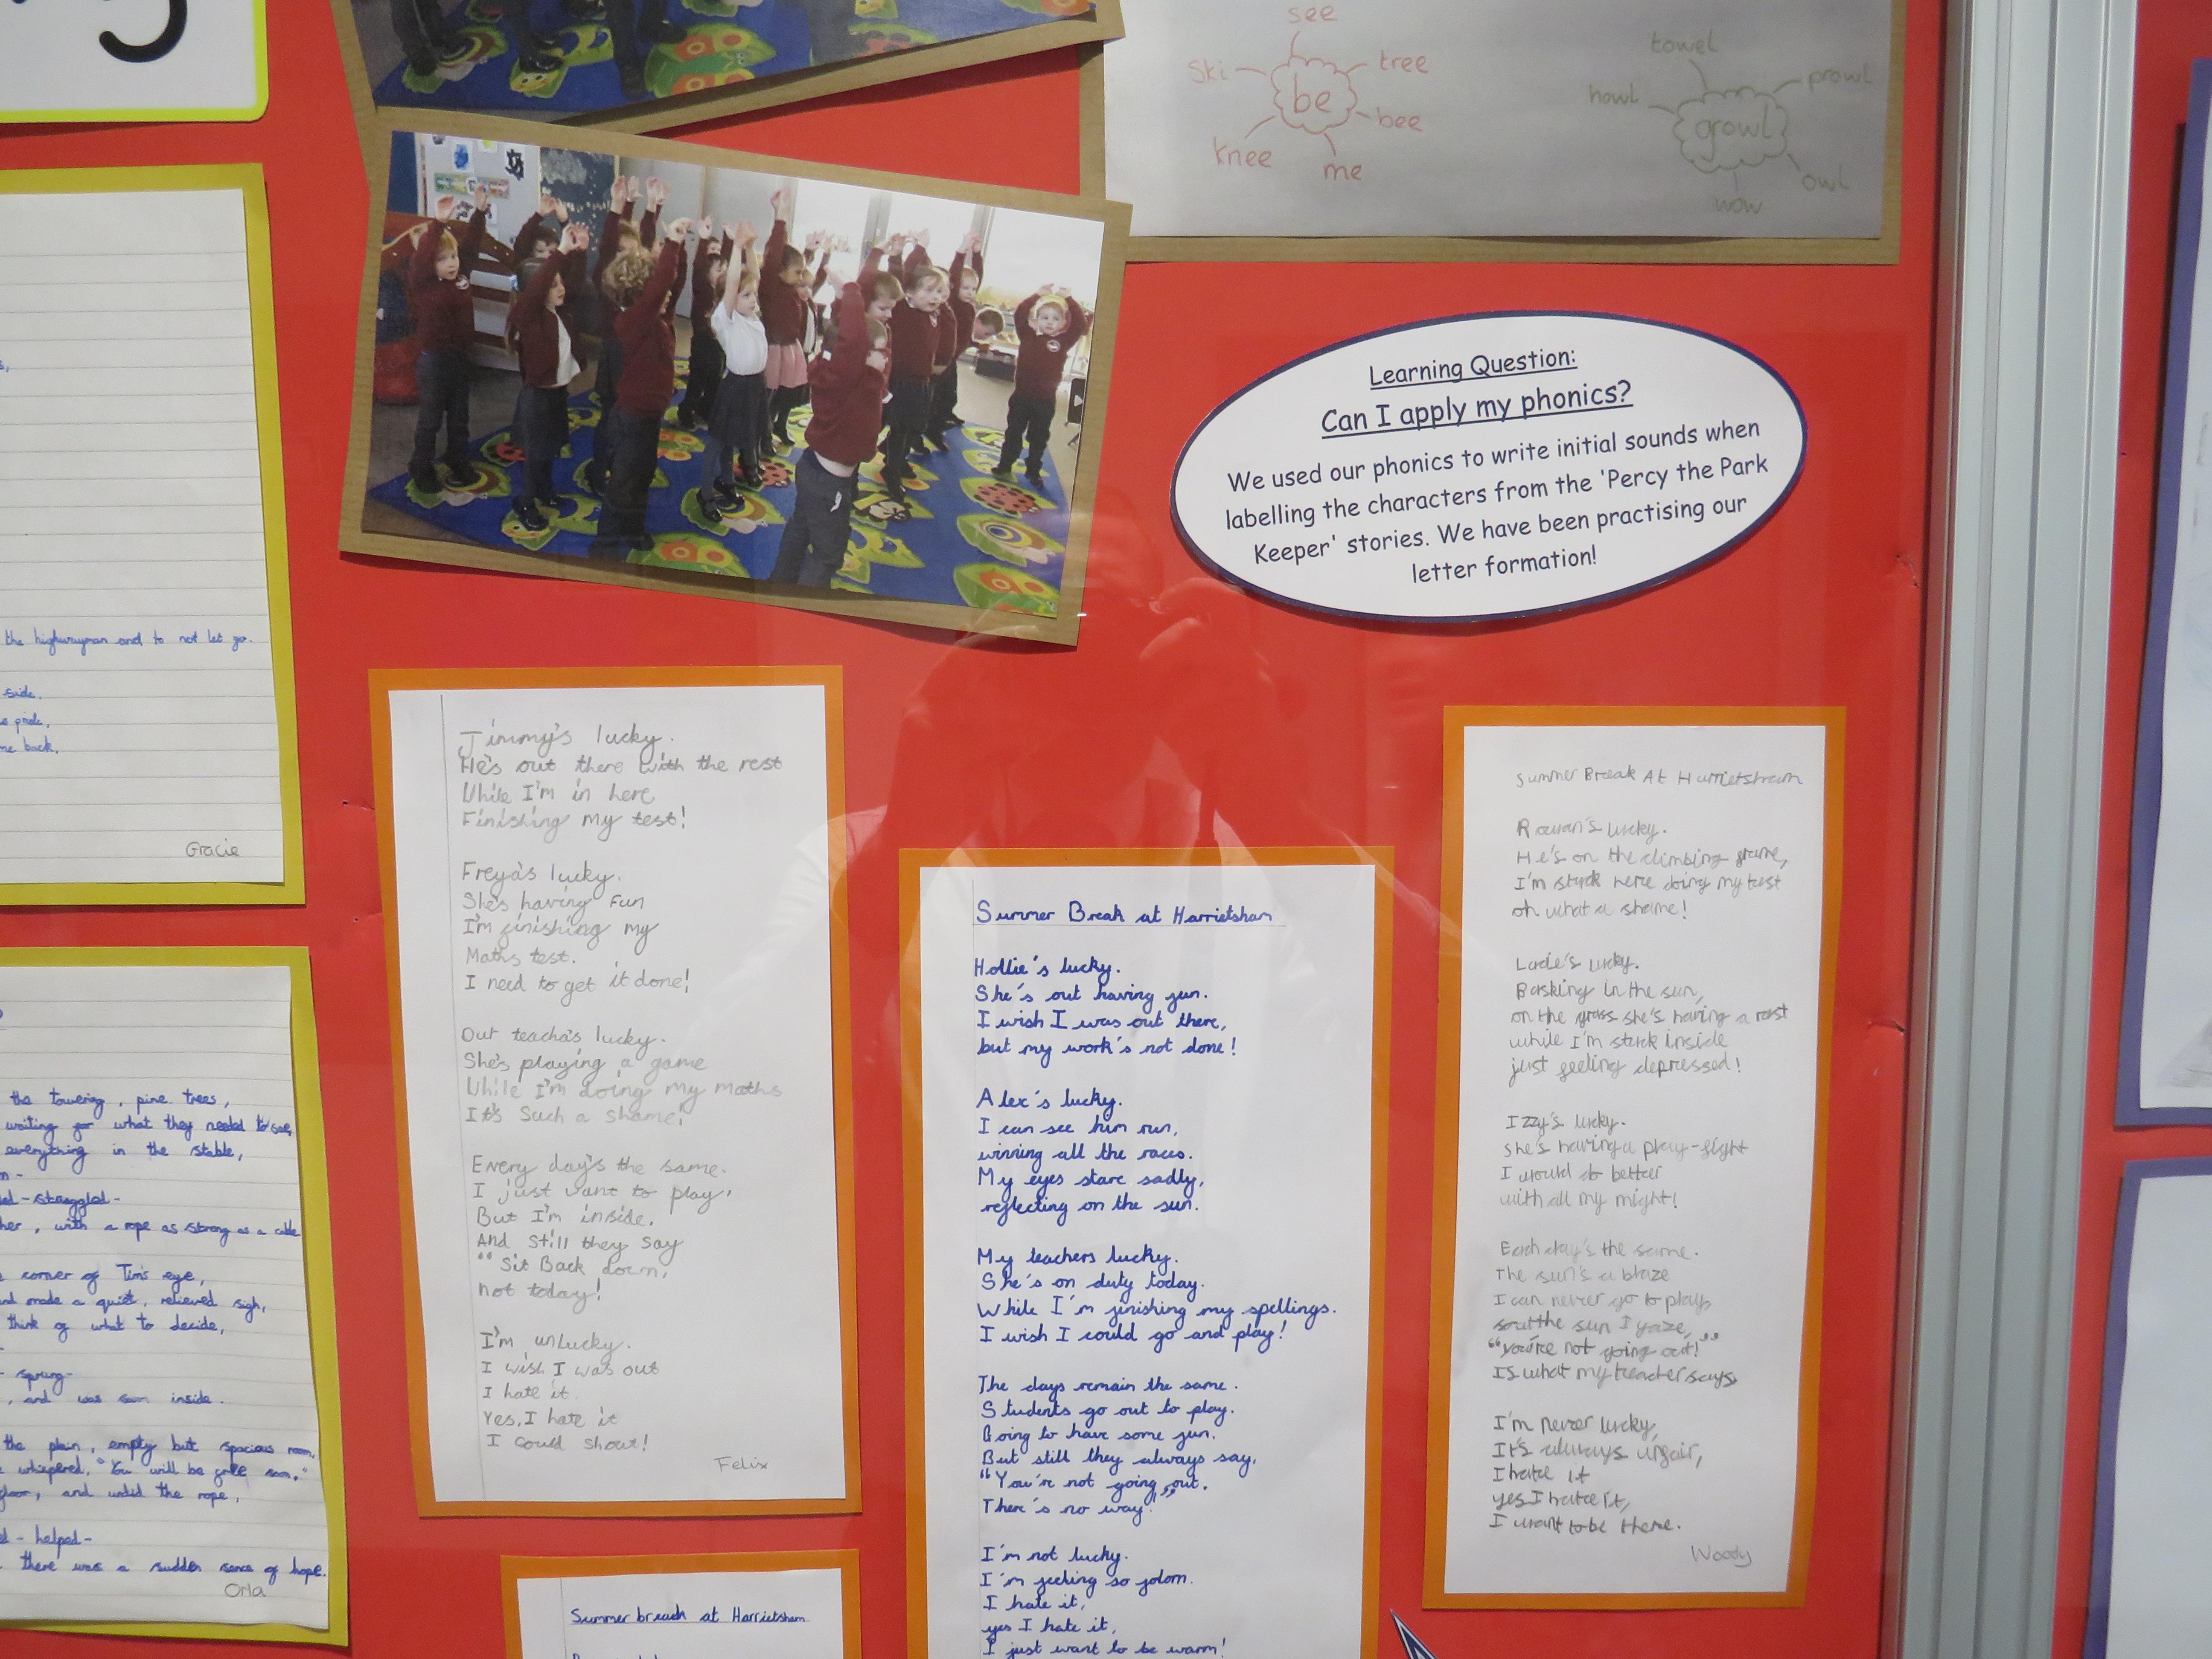 see
ski
tree
be
bee
knee
me
towel
howl
prowl
growl
owl
wow
Learning Question:
Can I apply my phonics?
We used our phonics to write initial sounds when
labelling the characters from the 'Percy the Park
Keeper' stories. We have been practising our
letter formation!
the highwayman and to not let go.
side.
pride,
back.
Gracie
the towering, pine trees,
waiting for what they needed to see,
everything in the stable,
struggled-
with a rope as strong as a cable
corner of Tim's eye,
made a quiet, relieved sigh,
think of what to decide,
- sprung-
, and was soon inside.
the plain, empty but spacious room,
whispered, "You will be free soon."
floor, and untied the rope,
- helped-
there was a sudden sense of hope.
Orla
Jimmy's lucky.
He's out there with the rest
While I'm in here
Finishing my test!
Freya's lucky.
She's having fun
I'm finishing my
Maths test.
I need to get it done!
Our teacha's lucky.
She's playing a game
While I'm doing my maths
It's Such a shame!
Every day's the same.
I just want to play,
But I'm inside.
And still they say
"Sit Back down,
not today!
I'm unlucky.
I wish I was out
I hate it.
Yes, I hate it
I could shout!
Felix
Summer Break at Harrietsham
Hollie's lucky.
She's out having fun.
I wish I was out there,
but my work's not done!
Alex's lucky.
I can see him run,
winning all the races.
My eyes stare sadly,
reflecting on the sun.
My teachers lucky.
She's on duty today.
While I'm finishing my spellings.
I wish I could go and play!
The days remain the same.
Students go out to play.
Going to have some fun.
But still they always say,
"You're not going out.
There's no way."
I'm not lucky.
I'm feeling so folorn.
I hate it,
yes I hate it,
I just want to be warm!
Summer Break At Harrietsham
Rowan's lucky.
He's on the climbing frame,
I'm stuck here doing my test
oh what a shame!
lucky.
Basking in the sun,
on the grass she's having a rest
while I'm stuck inside
just feeling depressed!
Izzy's lucky.
She's having a play-fight
I would do better
with all my might!
Each day's the same.
The sun's a blaze
I can never go to play,
the sun I gaze,
"you're not going out!"
Is what my teacher says,
I'm never lucky,
It's always unfair,
I hate it
yes I hate it,
I want to be there.
Woody
Summer break at Harrietsham